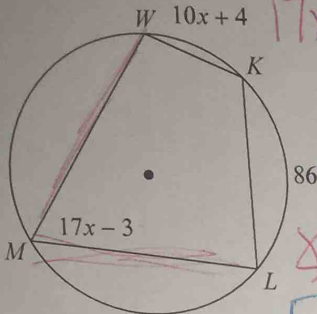 W 10x + 4
17
K
86
17x − 3
M
L